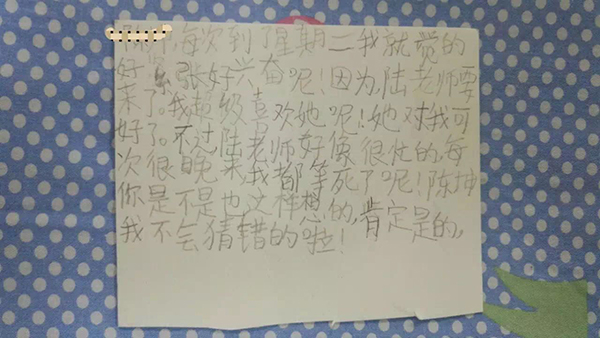 每次到了星期二我就觉的
好紧张好兴奋呢！因为陆老师要
来了。我超级喜欢她呢！她对我可
好了。不过陆老师好像很忙的，每
次很晚来我都等死了呢！陈坤
你是不是也这样想的，肯定是的，
我不会猜错的啦！